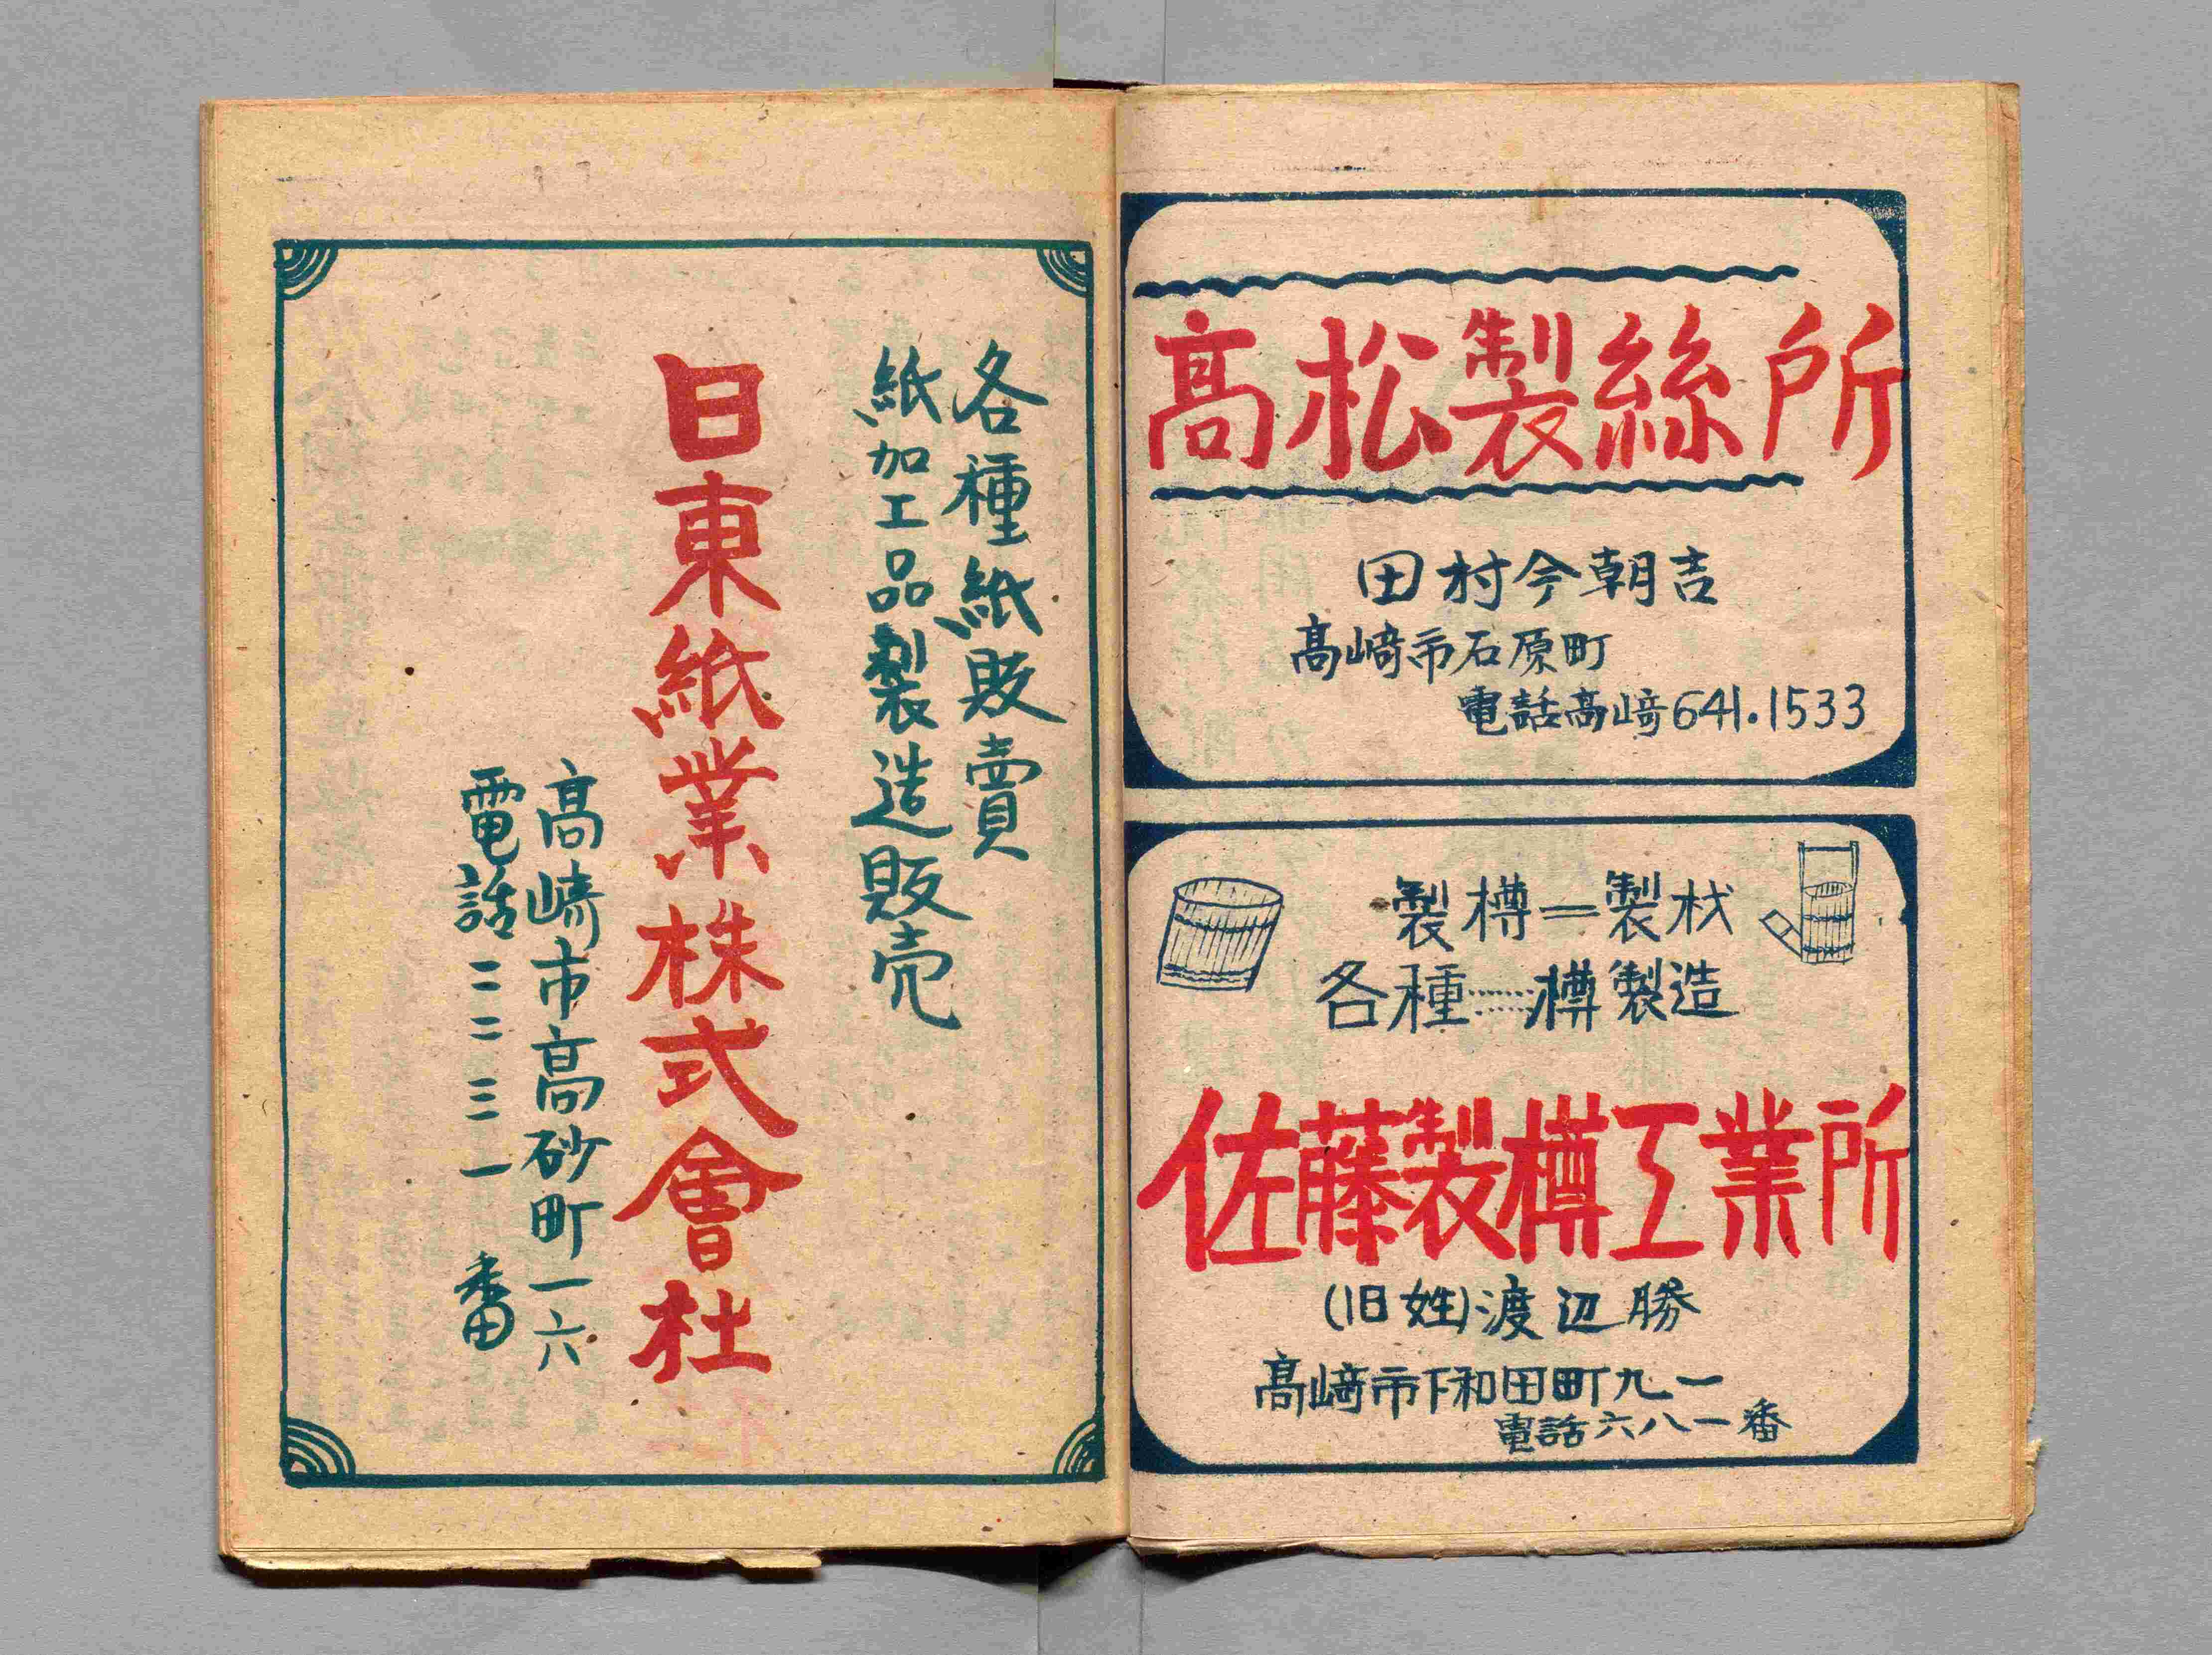 髙松製絲所
田村今朝吉
髙﨑市石原町
電話髙﨑641.1533
製樽=製材
各種……樽製造
佐藤製樽工業所
(旧姓)渡辺勝
髙﨑市下和田町九一
電話六八一番
各種紙販賣
紙加工品製造販売
日東紙業株式會社
髙﨑市髙砂町一六
電話二二三一番